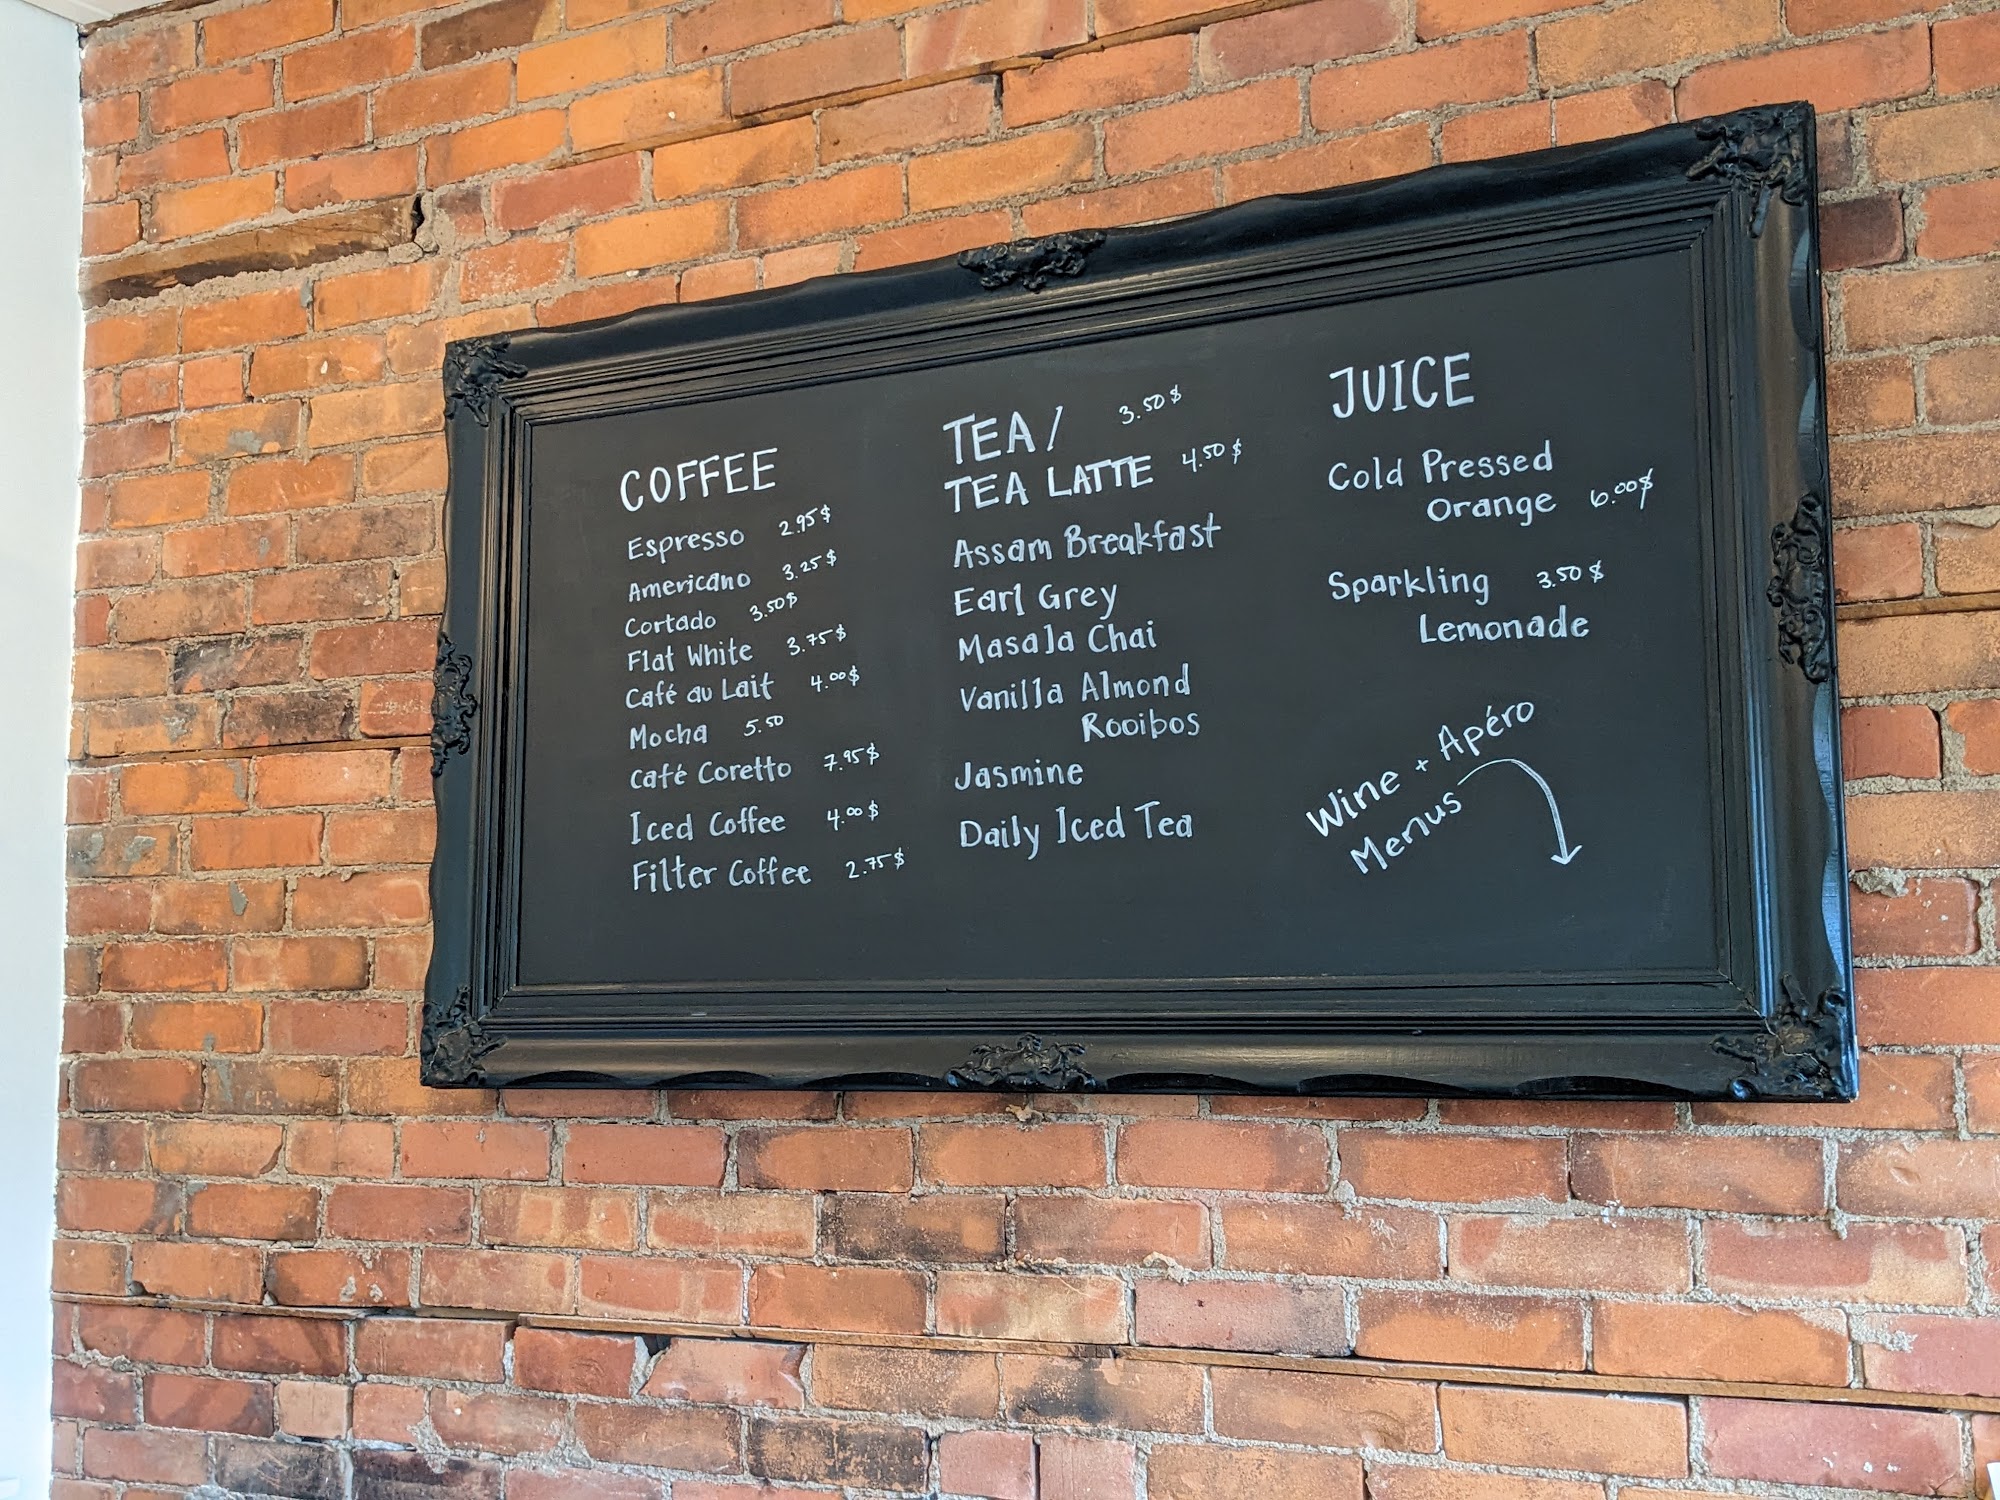 COFFEE
Espresso 2.95$
Americano 3.25$
Cortado 3.50$
Flat White 3.75$
Café au Lait 4.00$
Mocha 5.50
café Coretto 7.95$
Iced Coffee 4.00$
Filter Coffee 2.75$
TEA / 3.50$
TEA LATTE 4.50$
Assam Breakfast
Earl Grey
Masala Chai
Vanilla Almond
Rooibos
Jasmine
Daily Iced Tea
JUICE
Cold Pressed
Orange 6.00$
Sparkling 3.50$
Lemonade
Wine + Apéro
Menus